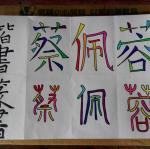 楷書篆書
蔡佩蓉
蔡佩蓉